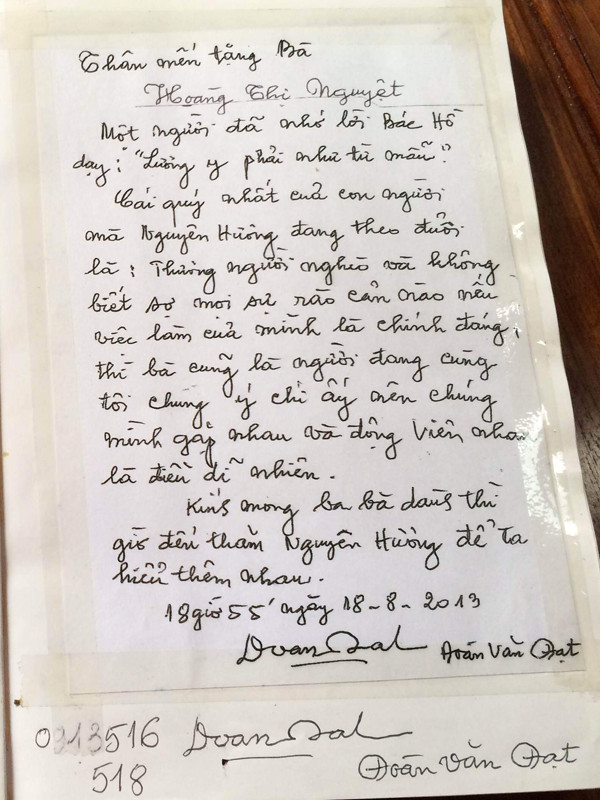 Thân mến tặng Bà
Hoàng Thị Nguyệt
Một người đã nhớ lời Bác Hồ
dạy: "Lương y phải như từ mẫu".
Cái quý nhất của con người
mà Nguyên Hường đang theo đuổi
là: Thương người nghèo và không
biết sợ mọi sự rào cản nào nếu
việc làm của mình là chính đáng,
thì bà cũng là người đang cùng
tôi chung ý chí ấy nên chúng
mình gặp nhau và động viên nhau
là điều dĩ nhiên.
Kính mong bà dành thì
giờ đến thăm Nguyên Hường để ta
hiểu thêm nhau.
18 giờ 55' ngày 18-8-2013
Doan Dal Đoàn Văn Đạt
0913516 Doan Dal
518 Đoàn Văn Đạt